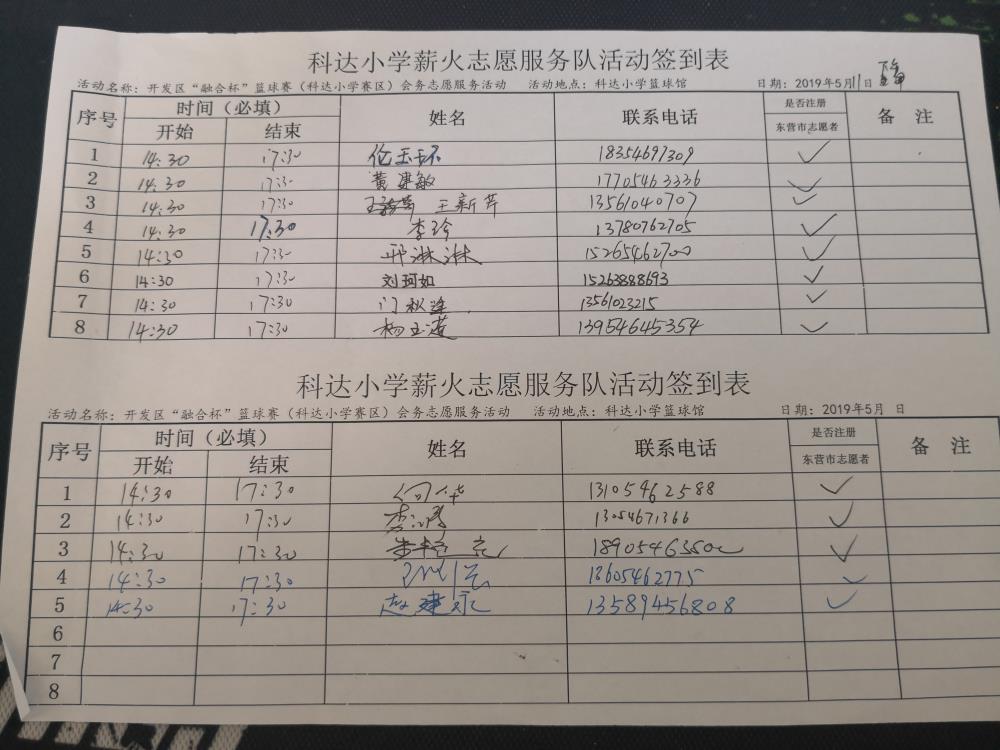 科达小学薪火志愿服务队活动签到表
活动名称：开发区“融合杯”篮球赛（科达小学赛区）会务志愿服务活动 活动地点：科达小学篮球馆 日期：2019年5月11日
序号 时间（必填） 姓名 联系电话 是否注册 备 注
开始 结束 东营市志愿者
1 14:30 17:30 伦玉环 18354697309 ✓
2 14:30 17:30 黄建敏 17705463336 ✓
3 14:30 17:30 王新芹 13561040707 ✓
4 14:30 17:30 李玲 13780762705 ✓
5 14:30 17:30 邢淋淋 15265462700 ✓
6 14:30 17:30 刘珂如 15263888693 ✓
7 14:30 17:30 门秋莲 13561023215 ✓
8 14:30 17:30 杨玉莲 13954645354 ✓
科达小学薪火志愿服务队活动签到表
活动名称：开发区“融合杯”篮球赛（科达小学赛区）会务志愿服务活动 活动地点：科达小学篮球馆 日期：2019年5月 日
序号 时间（必填） 姓名 联系电话 是否注册 备 注
开始 结束 东营市志愿者
1 14:30 17:30 何华 13105462588 ✓
2 14:30 17:30 13054671366 ✓
3 14:30 17:30 ✓
4 14:30 17:30 18605462775 ✓
5 14:30 17:30 赵建永 13589456808 ✓
6
7
8